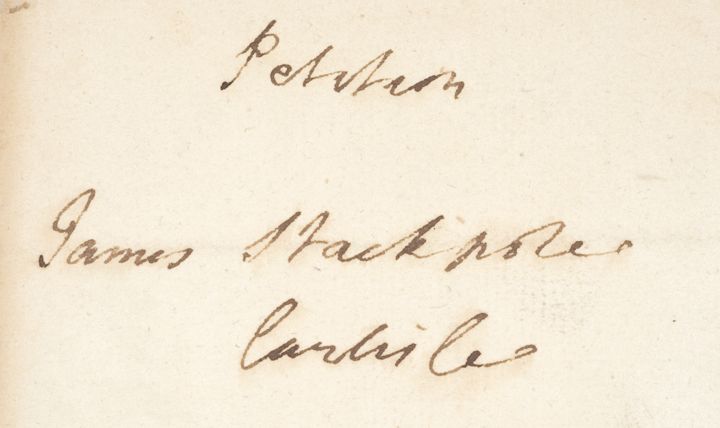 Petition
James Stackpole
Carlisle